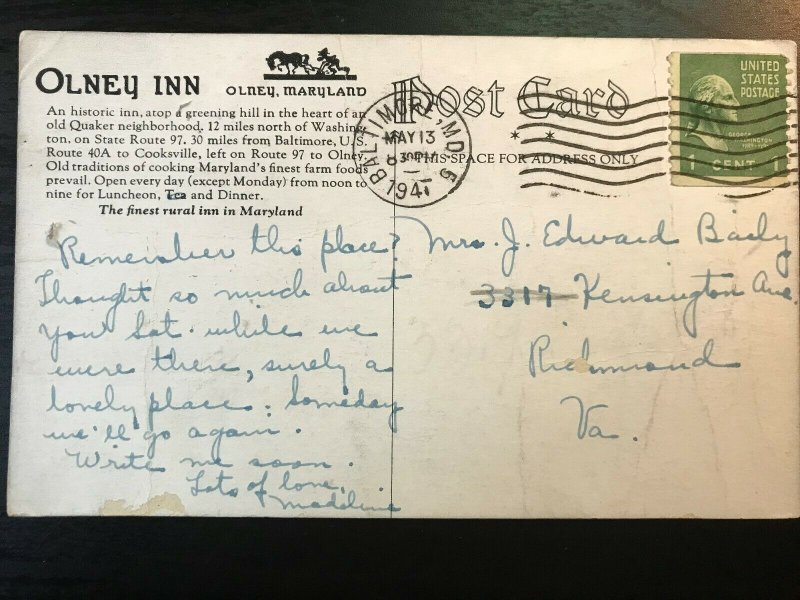 OLNEY INN
OLNEY, MARYLAND
An historic inn, atop a greening hill in the heart of an
old Quaker neighborhood. 12 miles north of Washing-
ton, on State Route 97. 30 miles from Baltimore, U.S.
Route 40A to Cooksville, left on Route 97 to Olney.
Old traditions of cooking Maryland's finest farm foods
prevail. Open every day (except Monday) from noon to
nine for Luncheon, Tea and Dinner.
The finest rural inn in Maryland
Remember this place?
Thought so much about
you Sat. while we
were there, surely a
lovely place. Someday
we'll go again.
Write me soon.
Lots of love,
Madeline
Post Card
THIS SPACE FOR ADDRESS ONLY
BALTIMORE, MD. 5
MAY 13
PM
194
UNITED
STATES
POSTAGE
GEORGE
WASHINGTON
1 CENT 1
Mrs. J. Edward Baily
3317 Kensington Ave.
Richmond
Va.